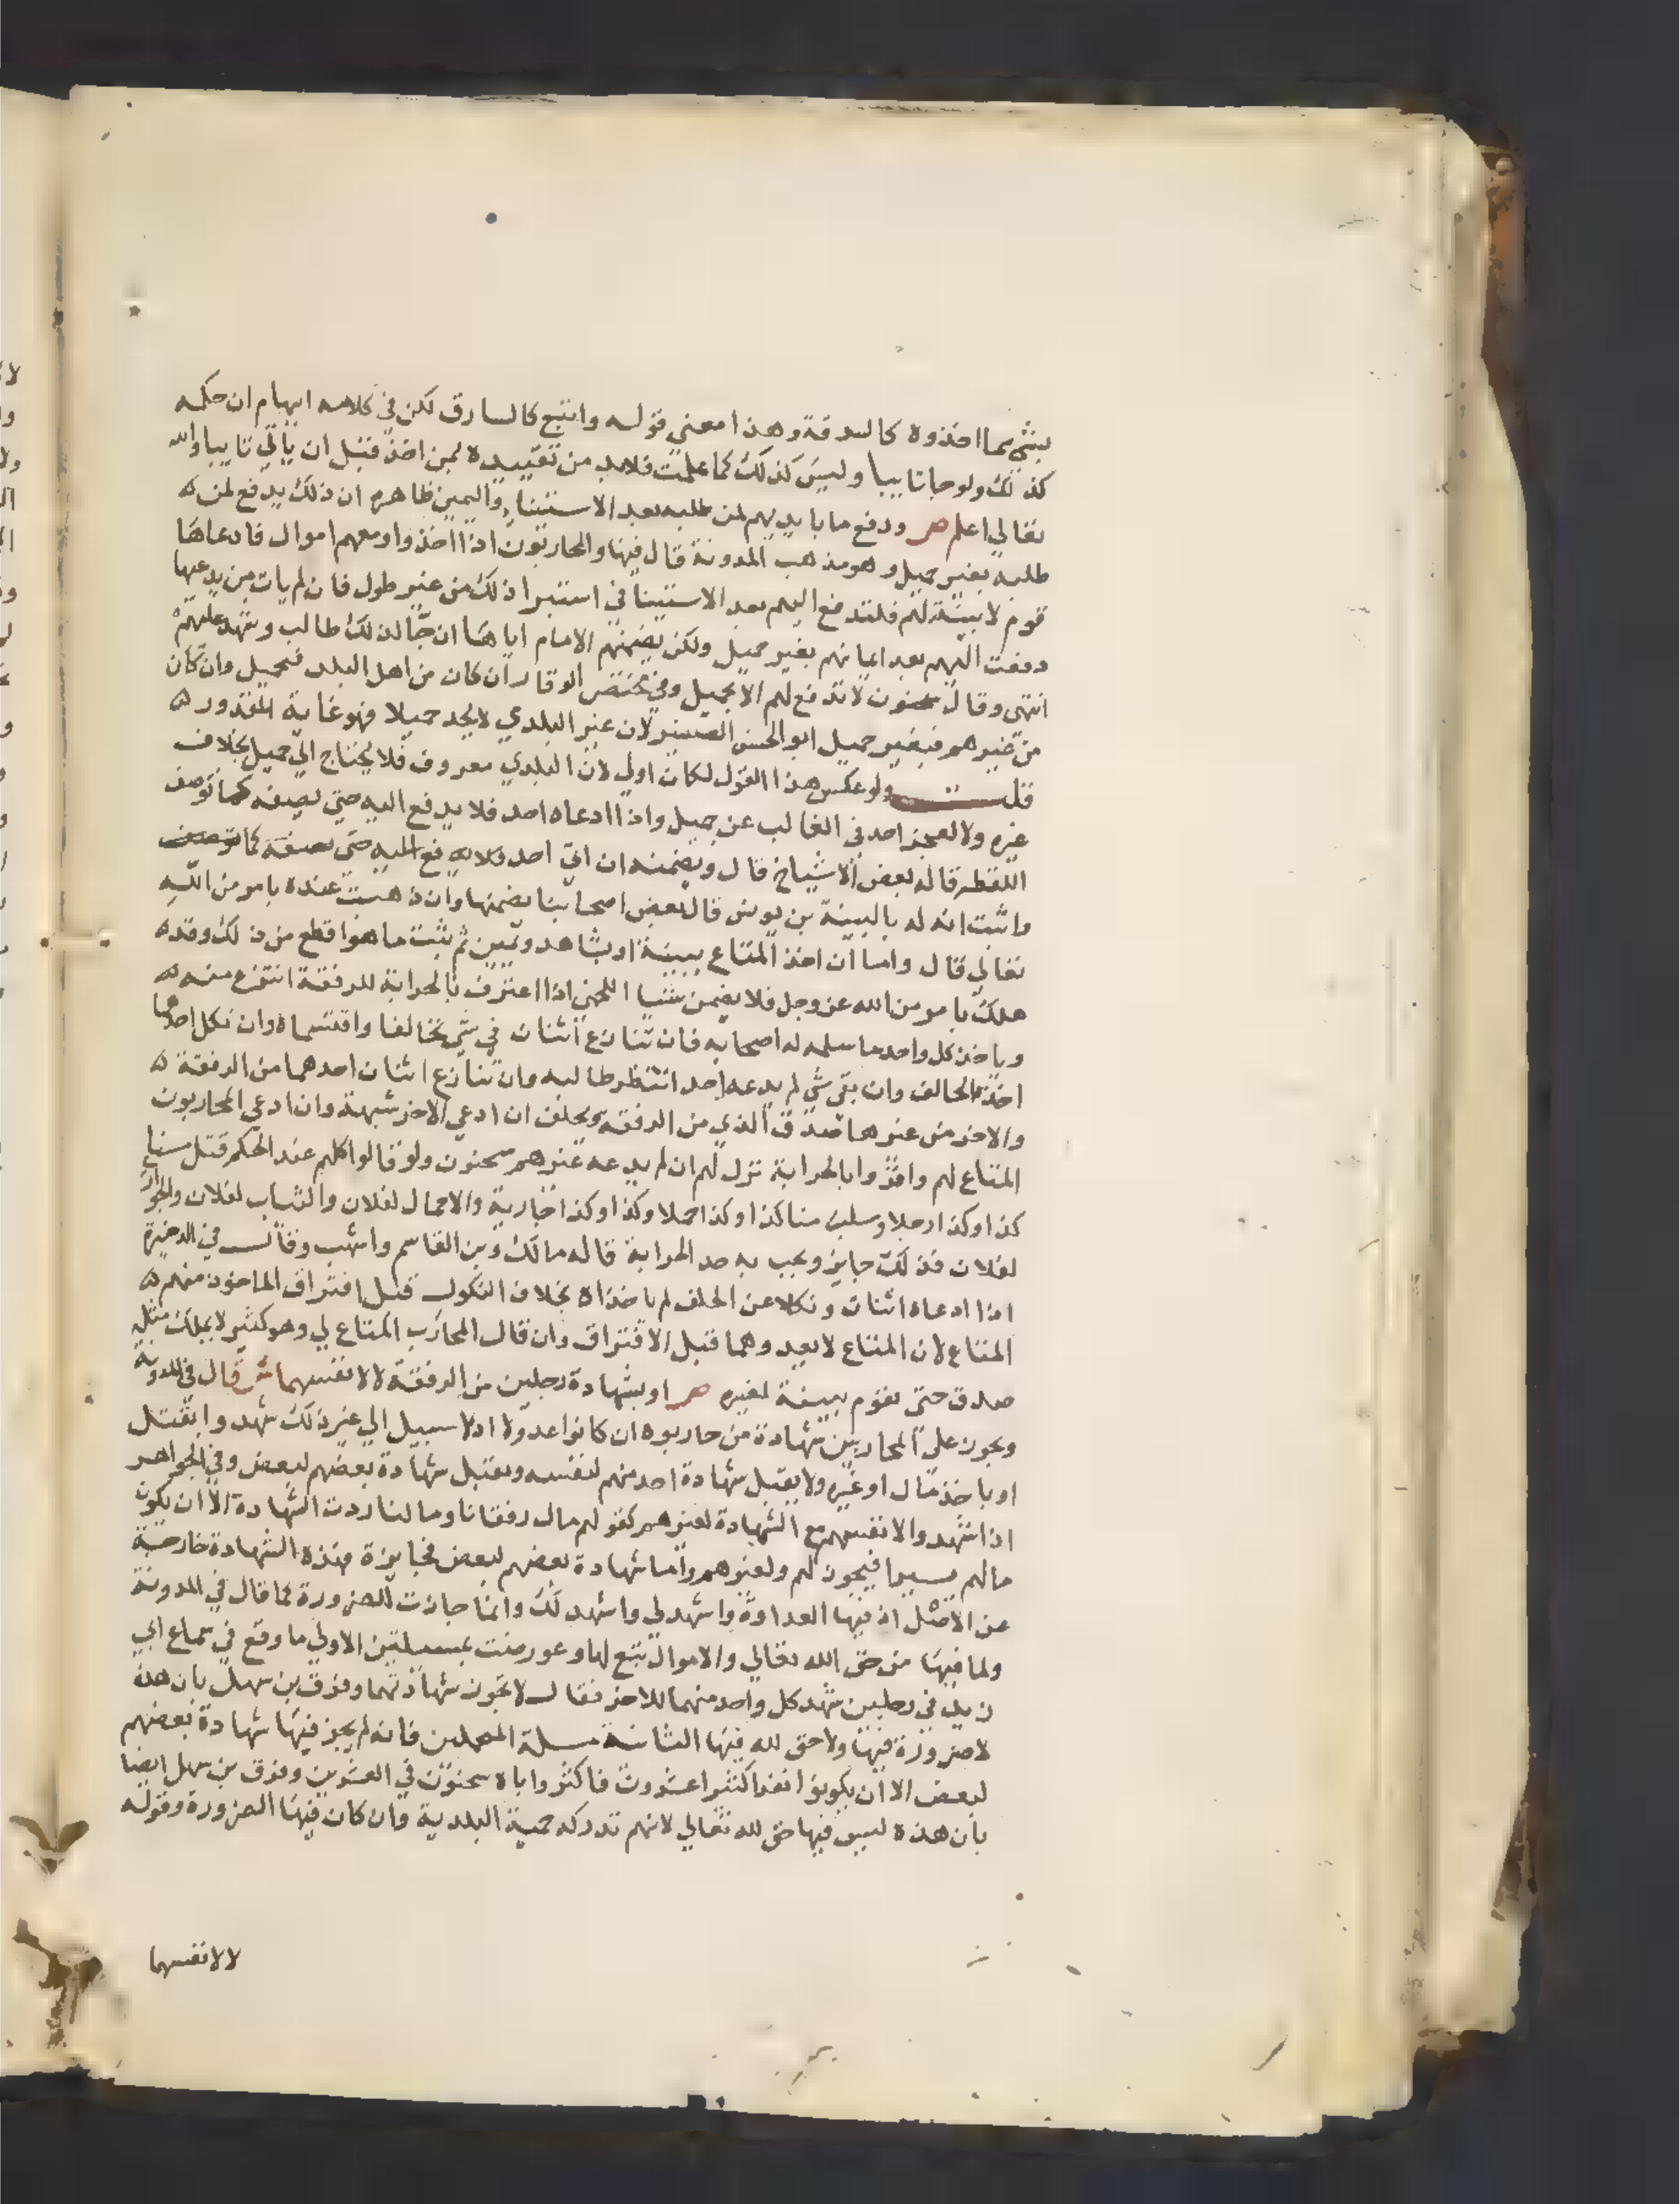 بشي مما اخذوه كالسرقة وهذا معني قوله واتبع كالسارق لكن في كلامه ايهام ان حكمه
كذلك ولو جا تايبا وليس كذلك كما علمت فلابد من تقييده لمن اخذ قبل ان ياتي تايبا والله
تعالي اعلم ص ودفع ما بايديهم لمن طلبه بعد الاستيناء واليمين ظاهره ان ذلك يدفع لمن
طلبه بغير حميل وهو مذهب المدونة قال فيها والمحاربون اذا اخذوا ومعهم اموال فادعاها
قوم لا بينة لهم فلتدفع اليهم بعد الاستينا في استبرا ذلك من غير طول فان لم يات من يدعيها
دفعت اليهم بعد ايمانهم بغير حميل ولكن يضمنهم الامام اياها ان جا لذلك طالب ويشهد عليهم
انتهي وقال سحنون لا تدفع لهم الا بحميل وفي مختصر الوقار ان كان من اهل البلد فبحميل وان كان
من غيرهم فبغير حميل ابو الحسن الصغير لان غير البلدي لا يجد حميلا فهو غاية المقدور
قلت ولو عكس هذا القول لكان اولي لان البلدي معروف فلا يحتاج الي حميل بخلاف
غيره ولا يعجز احد في الغالب عن حميل واذا ادعاه احد فلا يدفع اليه حتي يصفه كما توصف
اللقطه قاله بعض الاشياخ قال ويضمنه ان اتي احد فلا يدفع اليه حتي يصفه كما توصف
واثبت انه له بالبينة بن يونس قال بعض اصحابنا يضمنها وان ذهبت عنده بامر من الله
تعالي قال واما ان اخذ المتاع ببينة او بشاهد ويمين ثم يثبت ما هو اقطع من ذلك وقد
هلك بامر من الله عز وجل فلا يضمن شيا اللخمي اذا اعترف بالحرابة للرفقة انتزع منه
وياخذ كل واحد ما سلمه له اصحابه فان تنازع اثنان في شي تحالفا واقتسماه وان نكل احدهما
اخذه الحالف وان بقي شي لم يدعه احد انتظر طالبه وان تنازع اثنان احدهما من الرفقة
والاخر من غيرها صدق الذي من الرفقة ويحلف ان ادعي الاخر شبهة وان ادعي المحاربون
المتاع لهم واقروا بالحرابة ترك لهم ان لم يدعه غيرهم سحنون ولو قالوا كلهم عند الحكم قتل منا
كذا وكذا رجلا وسلب منا كذا وكذا حملا وكذا وكذا جارية والاحمال لفلان والثياب لفلان والجوار
لفلان فذلك جايز ويجب به حد الحرابة قاله مالك وبن القاسم واشهب وقال في الذخيرة
اذا ادعاه اثنان ونكلا عن الحلف لم ياخذاه بخلاف النكول قبل افتراق الماخوذ منهم
المتاع لان المتاع لا يعد وهما قبل الافتراق وان قال المحارب المتاع لي وهو كثير لا يملك مثله
صدق حتي تقوم بينة لغيره ص او بشهادة رجلين من الرفقة لا لانفسهما ش قال في المدونة
وتجوز علي المحاربين شهادة من حاربوه ان كانوا عدولا اذ لا سبيل الي غير ذلك شهدوا بقتل
او باخذ مال او غيره ولا يقبل شهادة احد منهم لنفسه وتقبل شهادة بعضهم لبعض وفي الجواهر
اذا شهدوا لانفسهم مع الشهادة لغيرهم كقولهم مال رفقانا ومالنا ردت الشهادة الا ان يكون
مالهم يسيرا فيجوز لهم ولغيرهم واما شهادة بعضهم لبعض فجايزة وهذه الشهادة خارجة
عن الاصل اذ فيها العداوة واشهد لي واشهد لك وانما جازت للضرورة كما قال في المدونة
ولما فيها من حق الله تعالي والاموال تبع لها وعورضت بمسلتين الاولي ما وقع في سماع ابي
زيد في رجلين شهد كل واحد منهما للاخر فقال لا تجوز شهادتهما وفرق بن سهل بان هذه
لا ضرورة فيها ولا حق لله فيها الثانية مسلة فانه لم يجز فيها شهادة بعضهم
لبعض الا ان يكونوا نفرا كثيرا عشرون فاكثر واباه سحنون في العشرين وفرق بن سهل ايضا
بان هذه ليس فيها حق لله تعالي لانهم تدركه حمية البلدية وان كان فيها الضرورة وقوله
لا لانفسهما